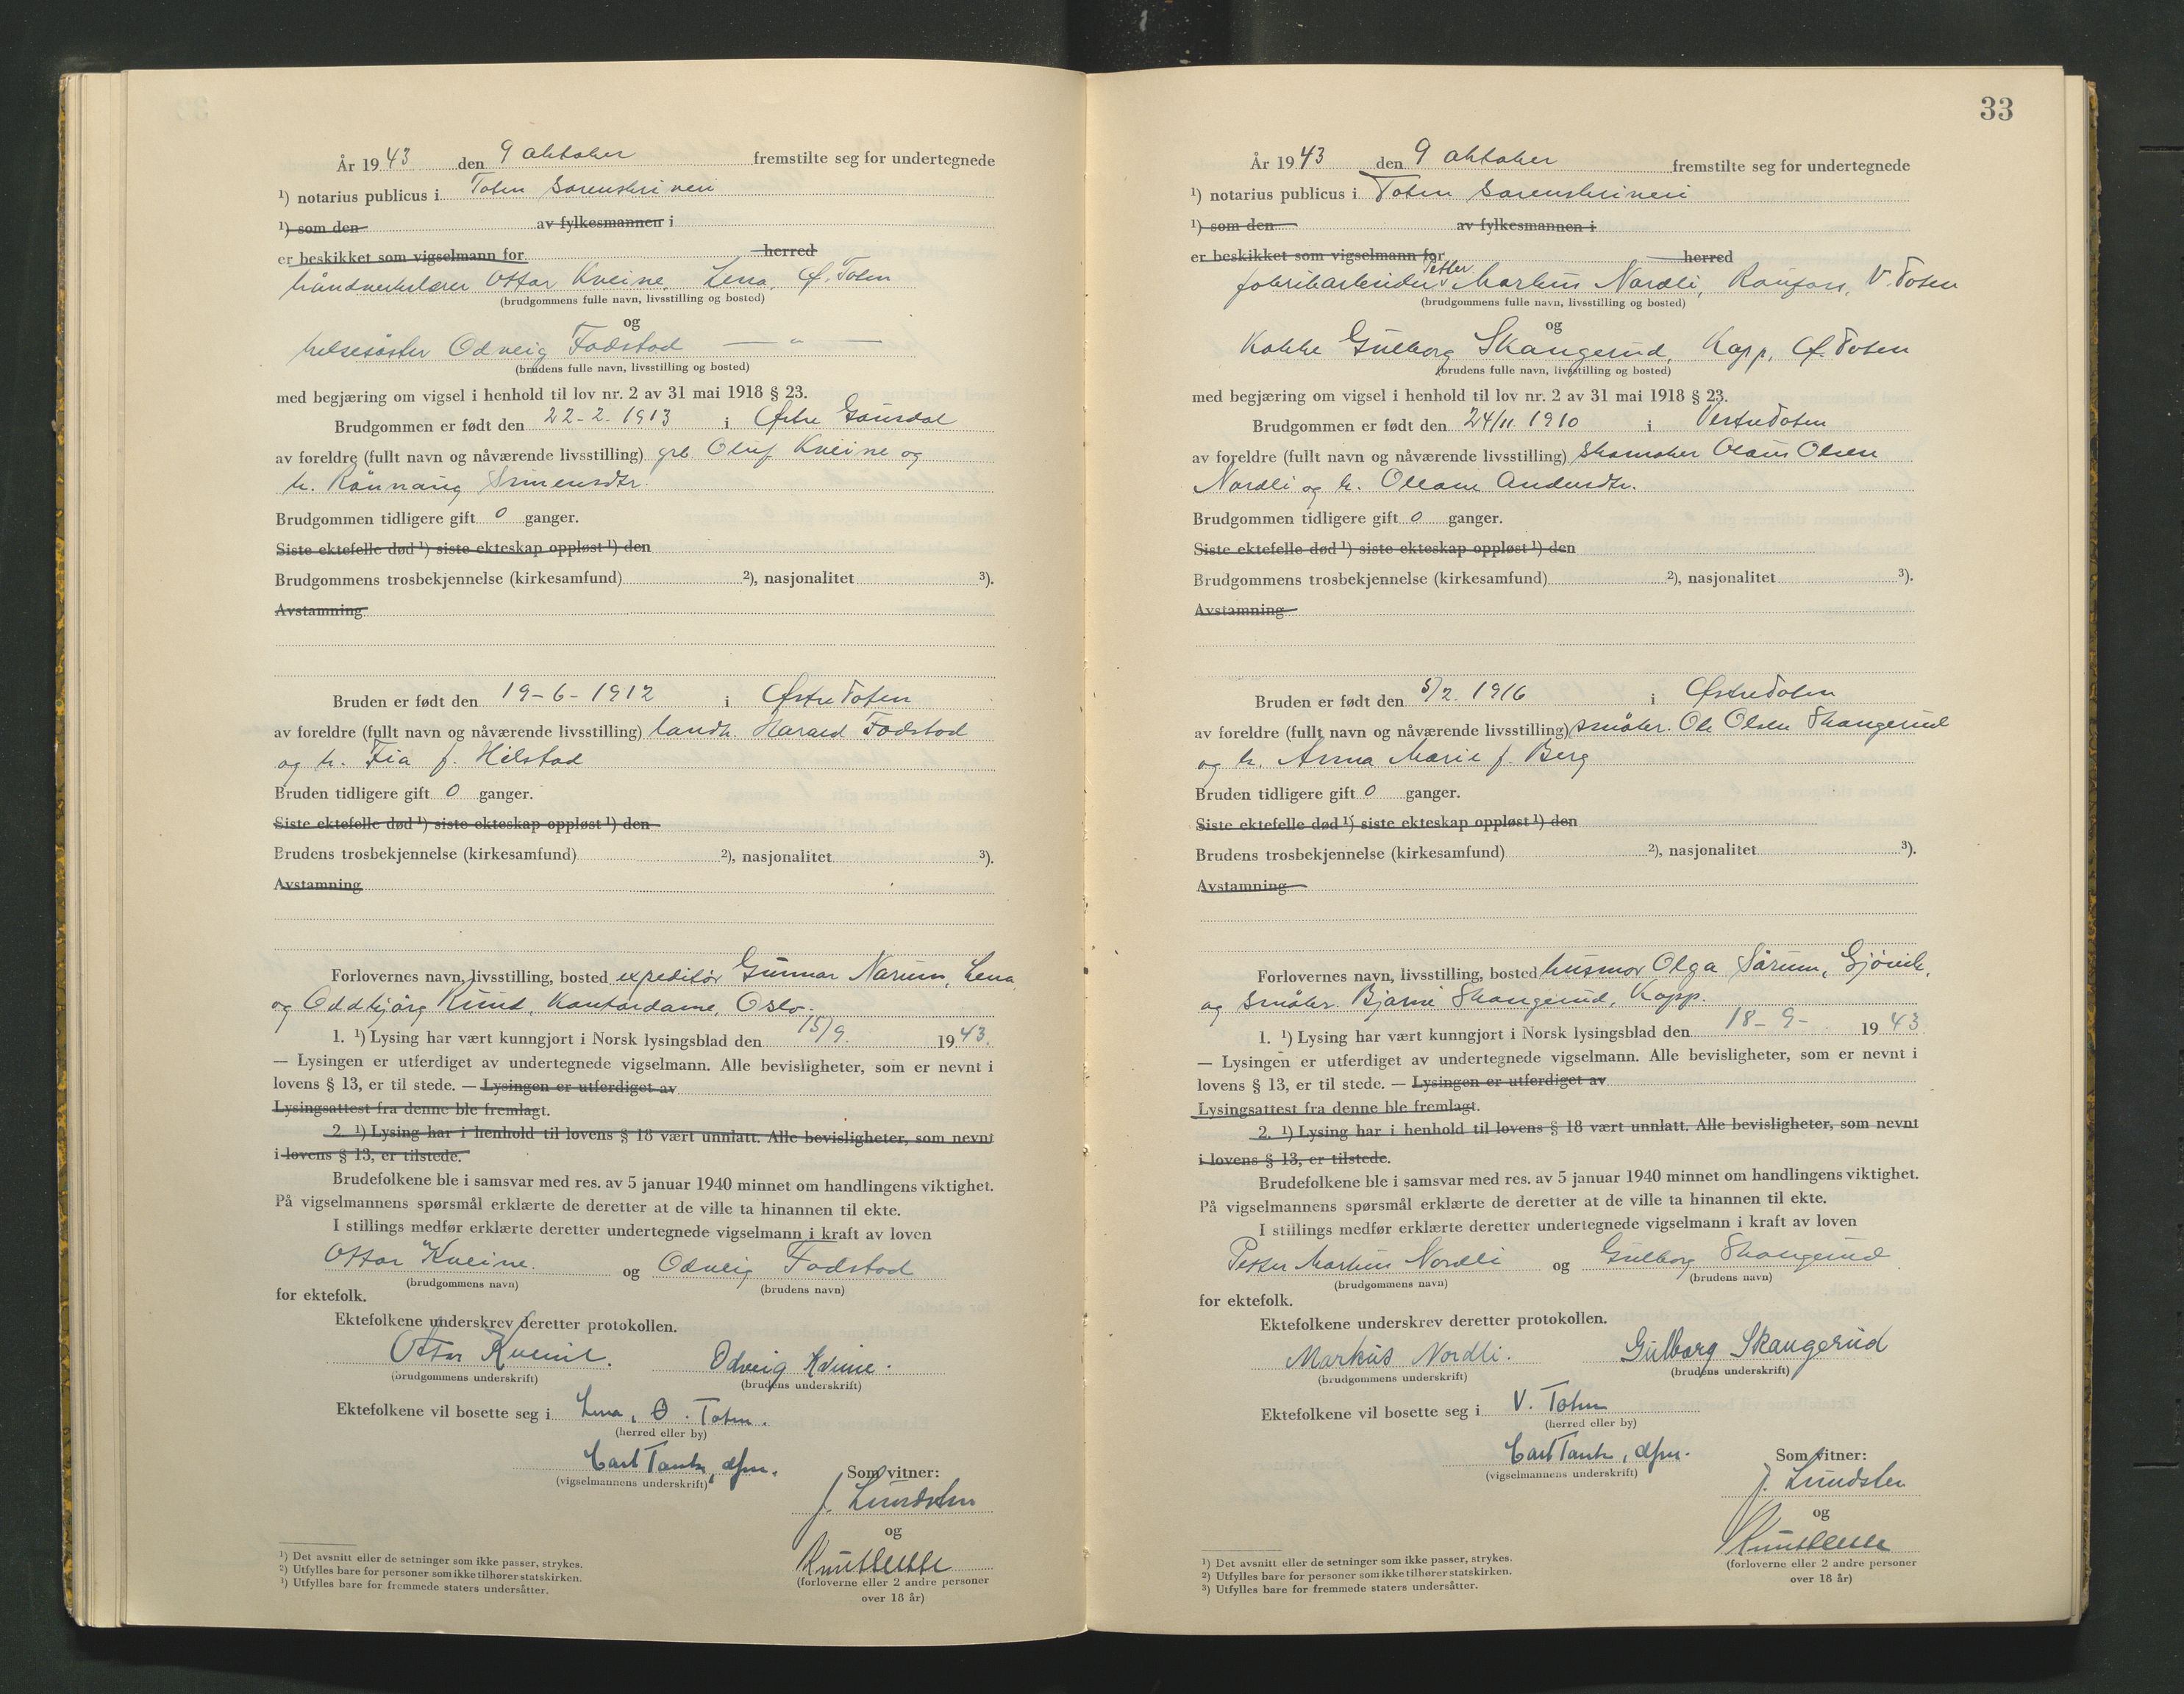 År 1943 den 9 oktober fremstilte seg for undertegnede
¹) notarius publicus i Toten Sorenskriveri
¹) som den av fylkesmannen i
er beskikket som vigselmann for herred
håndverkslærer Ottar Kveine Lena, Ø. Toten
(brudgommens fulle navn, livsstilling og bosted)
og
helsesøster Odveig Fodstad — " —
(brudens fulle navn, livsstilling og bosted)
med begjæring om vigsel i henhold til lov nr. 2 av 31 mai 1918 § 23.
Brudgommen er født den 22-2. 1913 i Østre Gausdal
av foreldre (fullt navn og nåværende livsstilling) grb. Oluf Kveine og
h. Rønnaug Simensdtr.
Brudgommen tidligere gift 0 ganger.
Siste ektefelle død ¹) siste ekteskap oppløst ¹) den
Brudgommens trosbekjennelse (kirkesamfund) ²), nasjonalitet ³).
Avstamning
Bruden er født den 19-6-1912 i Østre Toten
av foreldre (fullt navn og nåværende livsstilling) landh. Harald Fodstad
og h. Fia f. Hilstad
Bruden tidligere gift 0 ganger.
Siste ektefelle død ¹) siste ekteskap oppløst ¹) den
Brudens trosbekjennelse (kirkesamfund) ²), nasjonalitet ³).
Avstamning
Forlovernes navn, livsstilling, bosted expeditør Gunnar Narum, Lena
og Oddbjørg Ruud, Kontordame, Oslo.
1. ¹) Lysing har vært kunngjort i Norsk lysingsblad den 15/9. 1943.
— Lysingen er utferdiget av undertegnede vigselmann. Alle bevisligheter, som er nevnt i
lovens § 13, er til stede. — Lysingen er utferdiget av
Lysingsattest fra denne ble fremlagt.
2. ¹) Lysing har i henhold til lovens § 18 vært unnlatt. Alle bevisligheter, som nevnt
i lovens § 13, er tilstede.
Brudefolkene ble i samsvar med res. av 5 januar 1940 minnet om handlingens viktighet.
På vigselmannens spørsmål erklærte de deretter at de ville ta hinannen til ekte.
I stillings medfør erklærte deretter undertegnede vigselmann i kraft av loven
Ottar Kveine. og Odveig Fodstad
(brudgommens navn) (brudens navn)
for ektefolk.
Ektefolkene underskrev deretter protokollen.
Ottar Kveine. Odveig Kveine.
(brudgommens underskrift) (brudens underskrift)
Ektefolkene vil bosette seg i Lena, Ø. Toten.
(herred eller by)
Carl Tank, dfm.
(vigselmannens underskrift)
Som vitner:
J. Lundsten
og
(forloverne eller 2 andre personer
over 18 år)
¹) Det avsnitt eller de setninger som ikke passer, strykes.
²) Utfylles bare for personer som ikke tilhører statskirken.
³) Utfylles bare for fremmede staters undersåtter.
33
År 1943 den 9 oktober fremstilte seg for undertegnede
¹) notarius publicus i Toten Sorenskriveri
¹) som den av fylkesmannen i
er beskikket som vigselmann for herred
Petter
fabrikarbeider Markus Nordli, Raufoss, V. Toten
(brudgommens fulle navn, livsstilling og bosted)
og
Kokke Gulborg Skangerud, Kapp, Ø. Toten
(brudens fulle navn, livsstilling og bosted)
med begjæring om vigsel i henhold til lov nr. 2 av 31 mai 1918 § 23.
Brudgommen er født den 24/11. 1910 i Vestre Toten
av foreldre (fullt navn og nåværende livsstilling) Skomaker Olaus Olsen
Nordli og h. Oleane Andersdtr.
Brudgommen tidligere gift 0 ganger.
Siste ektefelle død ¹) siste ekteskap oppløst ¹) den
Brudgommens trosbekjennelse (kirkesamfund) ²), nasjonalitet ³).
Avstamning
Bruden er født den 5/2. 1916 i Østre Toten
av foreldre (fullt navn og nåværende livsstilling) småbr. Ole Olsen Skangerud
og h. Anna Marie f. Berg
Bruden tidligere gift 0 ganger.
Siste ektefelle død ¹) siste ekteskap oppløst ¹) den
Brudens trosbekjennelse (kirkesamfund) ²), nasjonalitet ³).
Avstamning
Forlovernes navn, livsstilling, bosted husmor Olga Sørum, Gjøvik,
og småbr. Bjarne Skangerud, Kapp.
1. ¹) Lysing har vært kunngjort i Norsk lysingsblad den 18-9- 1943
— Lysingen er utferdiget av undertegnede vigselmann. Alle bevisligheter, som er nevnt i
lovens § 13, er til stede. — Lysingen er utferdiget av
Lysingsattest fra denne ble fremlagt.
2. ¹) Lysing har i henhold til lovens § 18 vært unnlatt. Alle bevisligheter, som nevnt
i lovens § 13, er tilstede.
Brudefolkene ble i samsvar med res. av 5 januar 1940 minnet om handlingens viktighet.
På vigselmannens spørsmål erklærte de deretter at de ville ta hinannen til ekte.
I stillings medfør erklærte deretter undertegnede vigselmann i kraft av loven
Petter Markus Nordli og Gulborg Skangerud
(brudgommens navn) (brudens navn)
for ektefolk.
Ektefolkene underskrev deretter protokollen.
Markus Nordli. Gulborg Skangerud
(brudgommens underskrift) (brudens underskrift)
Ektefolkene vil bosette seg i V. Toten
(herred eller by)
Carl Tank, dfm.
(vigselmannens underskrift)
Som vitner:
J. Lundsten
og
(forloverne eller 2 andre personer
over 18 år)
¹) Det avsnitt eller de setninger som ikke passer, strykes.
²) Utfylles bare for personer som ikke tilhører statskirken.
³) Utfylles bare for fremmede staters undersåtter.